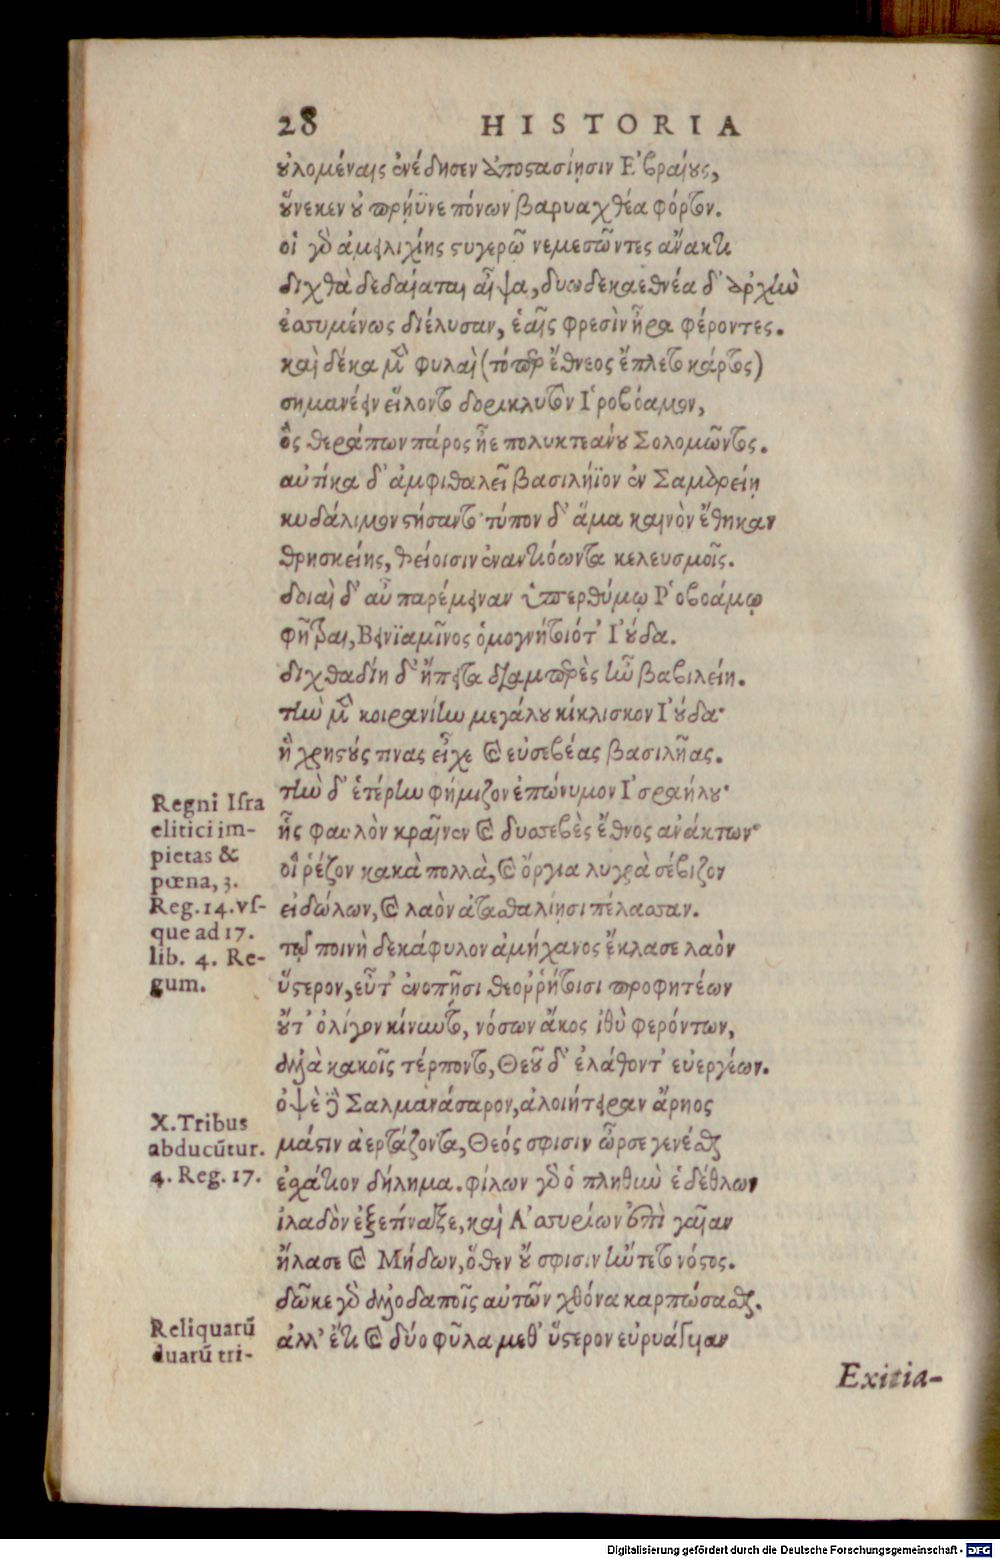 28 HISTORIA
οὐλομέναις ἐνέδησεν ἀποστασίῃσιν Ἑβραίους,
οὕνεκεν οὐ πρήϋνε πόνων βαρυαχθέα φόρτον.
οἱ γὰρ ἀμειλιχίης στυγερῷ νεμεσῶντες ἄνακτι
διχθὰ δεδαίαται αἶψα, δυωδεκαεθνέα δ' ἀρχὴν
ἐσσυμένως διέλυσαν, ἑαῖς φρεσὶν ἦρα φέροντες.
καὶ δέκα μὲν φυλαὶ (τόπερ ἔθνεος ἔπλετο κάρτος)
σημανέειν εἵλοντο δορικλυτὸν Ἱροβόαμον,
ὃς θεράπων πάρος ἦε πολυκτεάνου Σολομῶντος.
αὐτίκα δ' ἀμφιθαλεῖ βασιλήϊον ἐν Σαμαρείῃ
κυδάλιμον στήσαντο· τύπον δ' ἅμα καινὸν ἔθηκαν
θρησκείης, θείοισιν ἐναντιόωντα κελευσμοῖς.
δοιαὶ δ' αὖ παρέμειναν ὑπερθύμῳ Ῥοβοάμῳ
φῆτραι, Βενϊαμῖνος ὁμογνήτοιό τ' Ἰούδα.
διχθαδίη δ' ἤπειτα διαμπερὲς ἦν βασιλείη.
τὴν μὲν κοιρανίην μεγάλου κίκλισκον Ἰούδα·
ἣ χρηστούς τινας εἶχε καὶ εὐσεβέας βασιλῆας.
τὴν δ' ἑτέρην φήμιζον ἐπώνυμον Ἰσραήλου·
ἧς φαυλὸν κραῖνεν καὶ δυσσεβὲς ἔθνος ἀνάκτων·
οἳ ῥέζον κακὰ πολλὰ, καὶ ὄργια λυγρὰ σέβιζον
εἰδώλων, καὶ λαὸν ἀτασθαλίῃσι πέλασσαν.
τῷ ποινὴ δεκάφυλον ἀμήχανος ἔκλασε λαὸν
ὕστερον, εὖτ' ἐνοπῇσι θεοῤῥήτοισι προφητέων
οὔτ' ὀλίγον κίνωντο, νόσων ἄκος ἰθὺ φερόντων,
ἀλλὰ κακοῖς τέρποντο, Θεοῦ δ' ἐλάθοντ' εὐεργέων.
ὀψὲ δὲ Σαλμανάσαρον, ἀλοιήτειραν ἄρηος
μάστιν ἀερτάζοντα, Θεός σφισιν ὦρσε γενέσθαι
ἐσχάτιον δήλημα. φίλων γὰρ ὁ πληθὺν ἑδέθλων
ἰλαδὸν ἐξετίναξε, καὶ Ἀσσυρίων ἐπὶ γαῖαν
ἤλασε καὶ Μήδων, ὅθεν οὔ σφισιν ἤντετο νόστος.
δῶκε γὰρ ἀλλοδαποῖς αὐτῶν χθόνα καρπώσασθαι.
ἀλλ' ἔτι καὶ δύο φῦλα μεθ' ὕστερον εὐρυάγυιαν
Regni Isra
elitici im-
pietas &
pœna, 3.
Reg. 14. vs-
que ad 17.
lib. 4. Re-
gum.
X. Tribus
abducūtur.
4. Reg. 17.
Reliquarū
duarū tri-
Exitia-
Digitalisierung gefördert durch die Deutsche Forschungsgemeinschaft - DFG